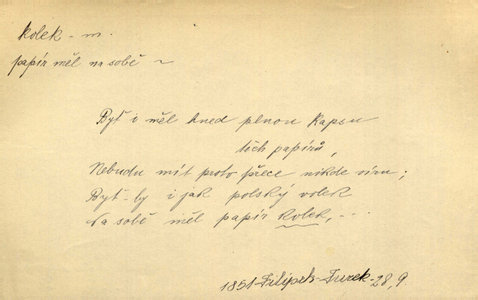 kolek – m.
papír měl na sobě ~
Byť i měl hned plnou kapsu
těch papírů,
Nebudu mít proto přece nikde víru;
Byť-by i jak polský volek
Na sobě měl papír kolek, –..
1851 Filípek-Turek-28,9